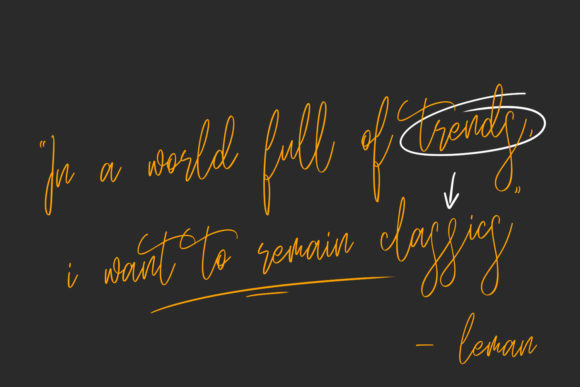 "In a world full of trends,
i want to remain classics"
- leman